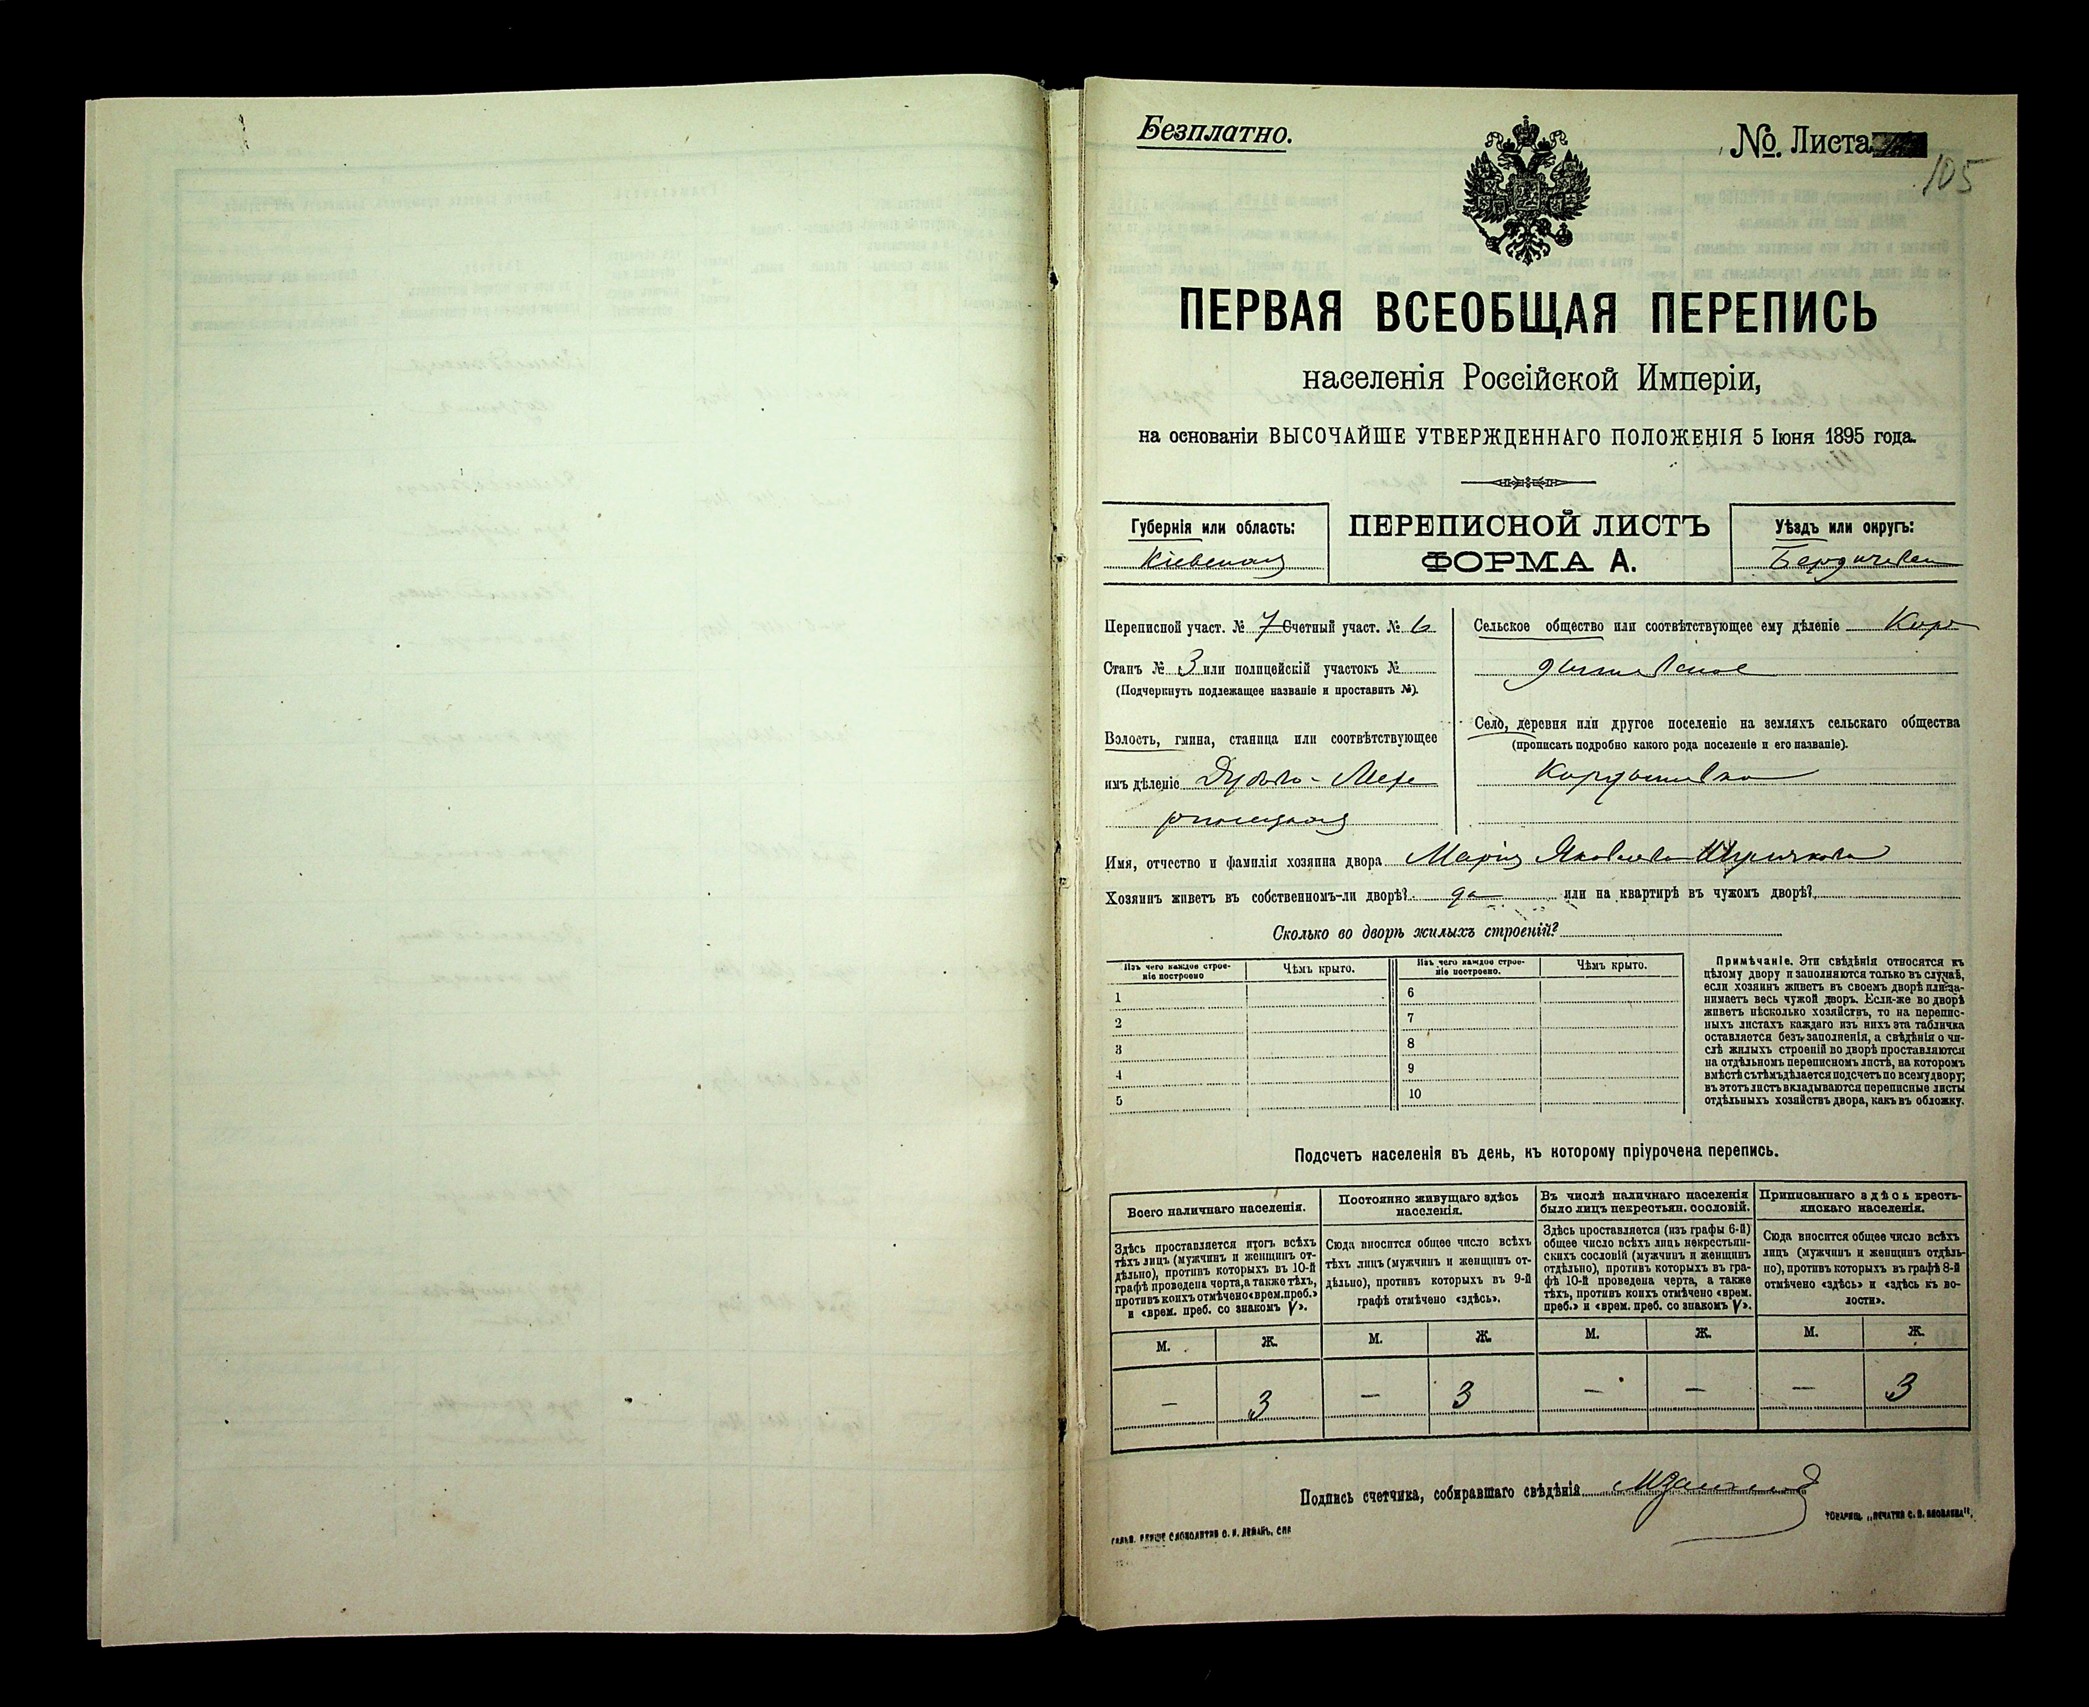 Безплатно.
№ Листа
105
ПЕРВАЯ ВСЕОБЩАЯ ПЕРЕПИСЬ
населенія Россійской Имперіи,
на основаніи ВЫСОЧАЙШЕ УТВЕРЖДЕННАГО ПОЛОЖЕНІЯ 5 Іюня 1895 года.
Губернія или область:
Кіевская
ПЕРЕПИСНОЙ ЛИСТЪ
ФОРМА А.
Уѣздъ или округъ:
Бердичевск
Переписной участ. № 7 Счетный участ. № 6
Станъ № 3 или полицейскій участокъ №
(Подчеркнуть подлежащее названіе и проставить №).
Волость, гмина, станица или соотвѣтствующее
имъ дѣленіе
Сельское общество или соотвѣтствующее ему дѣленіе Кор
дышевское
Село, деревня или другое поселеніе на земляхъ сельскаго общества
(прописать подробно какого рода поселеніе и его названіе).
Кордышевка
Имя, отчество и фамилія хозяина двора Марія Яковлева
Хозяинъ живетъ въ собственномъ-ли дворѣ? да или на квартирѣ въ чужомъ дворѣ?
Сколько во дворѣ жилыхъ строеній?
Изъ чего каждое строе-
ніе построено
Чѣмъ крыто.
1
2
3
4
5
Изъ чего каждое строе-
ніе построено.
Чѣмъ крыто.
6
7
8
9
10
Примѣчаніе. Эти свѣдѣнія относятся къ
цѣлому двору и заполняются только въ случаѣ,
если хозяинъ живетъ въ своемъ дворѣ или за-
нимаетъ весь чужой дворъ. Если-же во дворѣ
живетъ нѣсколько хозяйствъ, то на перепис-
ныхъ листахъ каждаго изъ нихъ эта табличка
оставляется безъ заполненія, а свѣдѣнія о чи-
слѣ жилыхъ строеній во дворѣ проставляются
на отдѣльномъ переписномъ листѣ, на которомъ
вмѣстѣ съ тѣмъ дѣлается подсчетъ по всему двору;
въ этотъ листъ вкладываются переписные листы
отдѣльныхъ хозяйствъ двора, какъ въ обложку.
Подсчетъ населенія въ день, къ которому пріурочена перепись.
Всего наличнаго населенія.
Здѣсь проставляется итогъ всѣхъ
тѣхъ лицъ (мужчинъ и женщинъ от-
дѣльно), противъ которыхъ въ 10-й
графѣ проведена черта, а также тѣхъ,
противъ коихъ отмѣчено «врем. преб.»
и «врем. преб. со знакомъ V».
Постоянно живущаго здѣсь
населенія.
Сюда вносится общее число всѣхъ
тѣхъ лицъ (мужчинъ и женщинъ от-
дѣльно), противъ которыхъ въ 9-й
графѣ отмѣчено «здѣсь».
Въ числѣ наличнаго населенія
было лицъ некрестьян. сословій.
Здѣсь проставляется (изъ графы 6-й)
общее число всѣхъ лицъ некрестьян-
скихъ сословій (мужчинъ и женщинъ
отдѣльно), противъ которыхъ въ гра-
фѣ 10-й проведена черта, а также
тѣхъ, противъ коихъ отмѣчено «врем.
преб.» и «врем. преб. со знакомъ V».
Приписаннаго здѣсь кресть-
янскаго населенія.
Сюда вносится общее число всѣхъ
лицъ (мужчинъ и женщинъ отдѣль-
но), противъ которыхъ въ графѣ 8-й
отмѣчено «здѣсь» и «здѣсь къ во-
лости».
М. Ж. М. Ж. М. Ж. М. Ж.
— 3 — 3 — — — 3
Подпись счетчика, собиравшаго свѣдѣнія
Товарищ. „Печатня С. П. Яковлева".